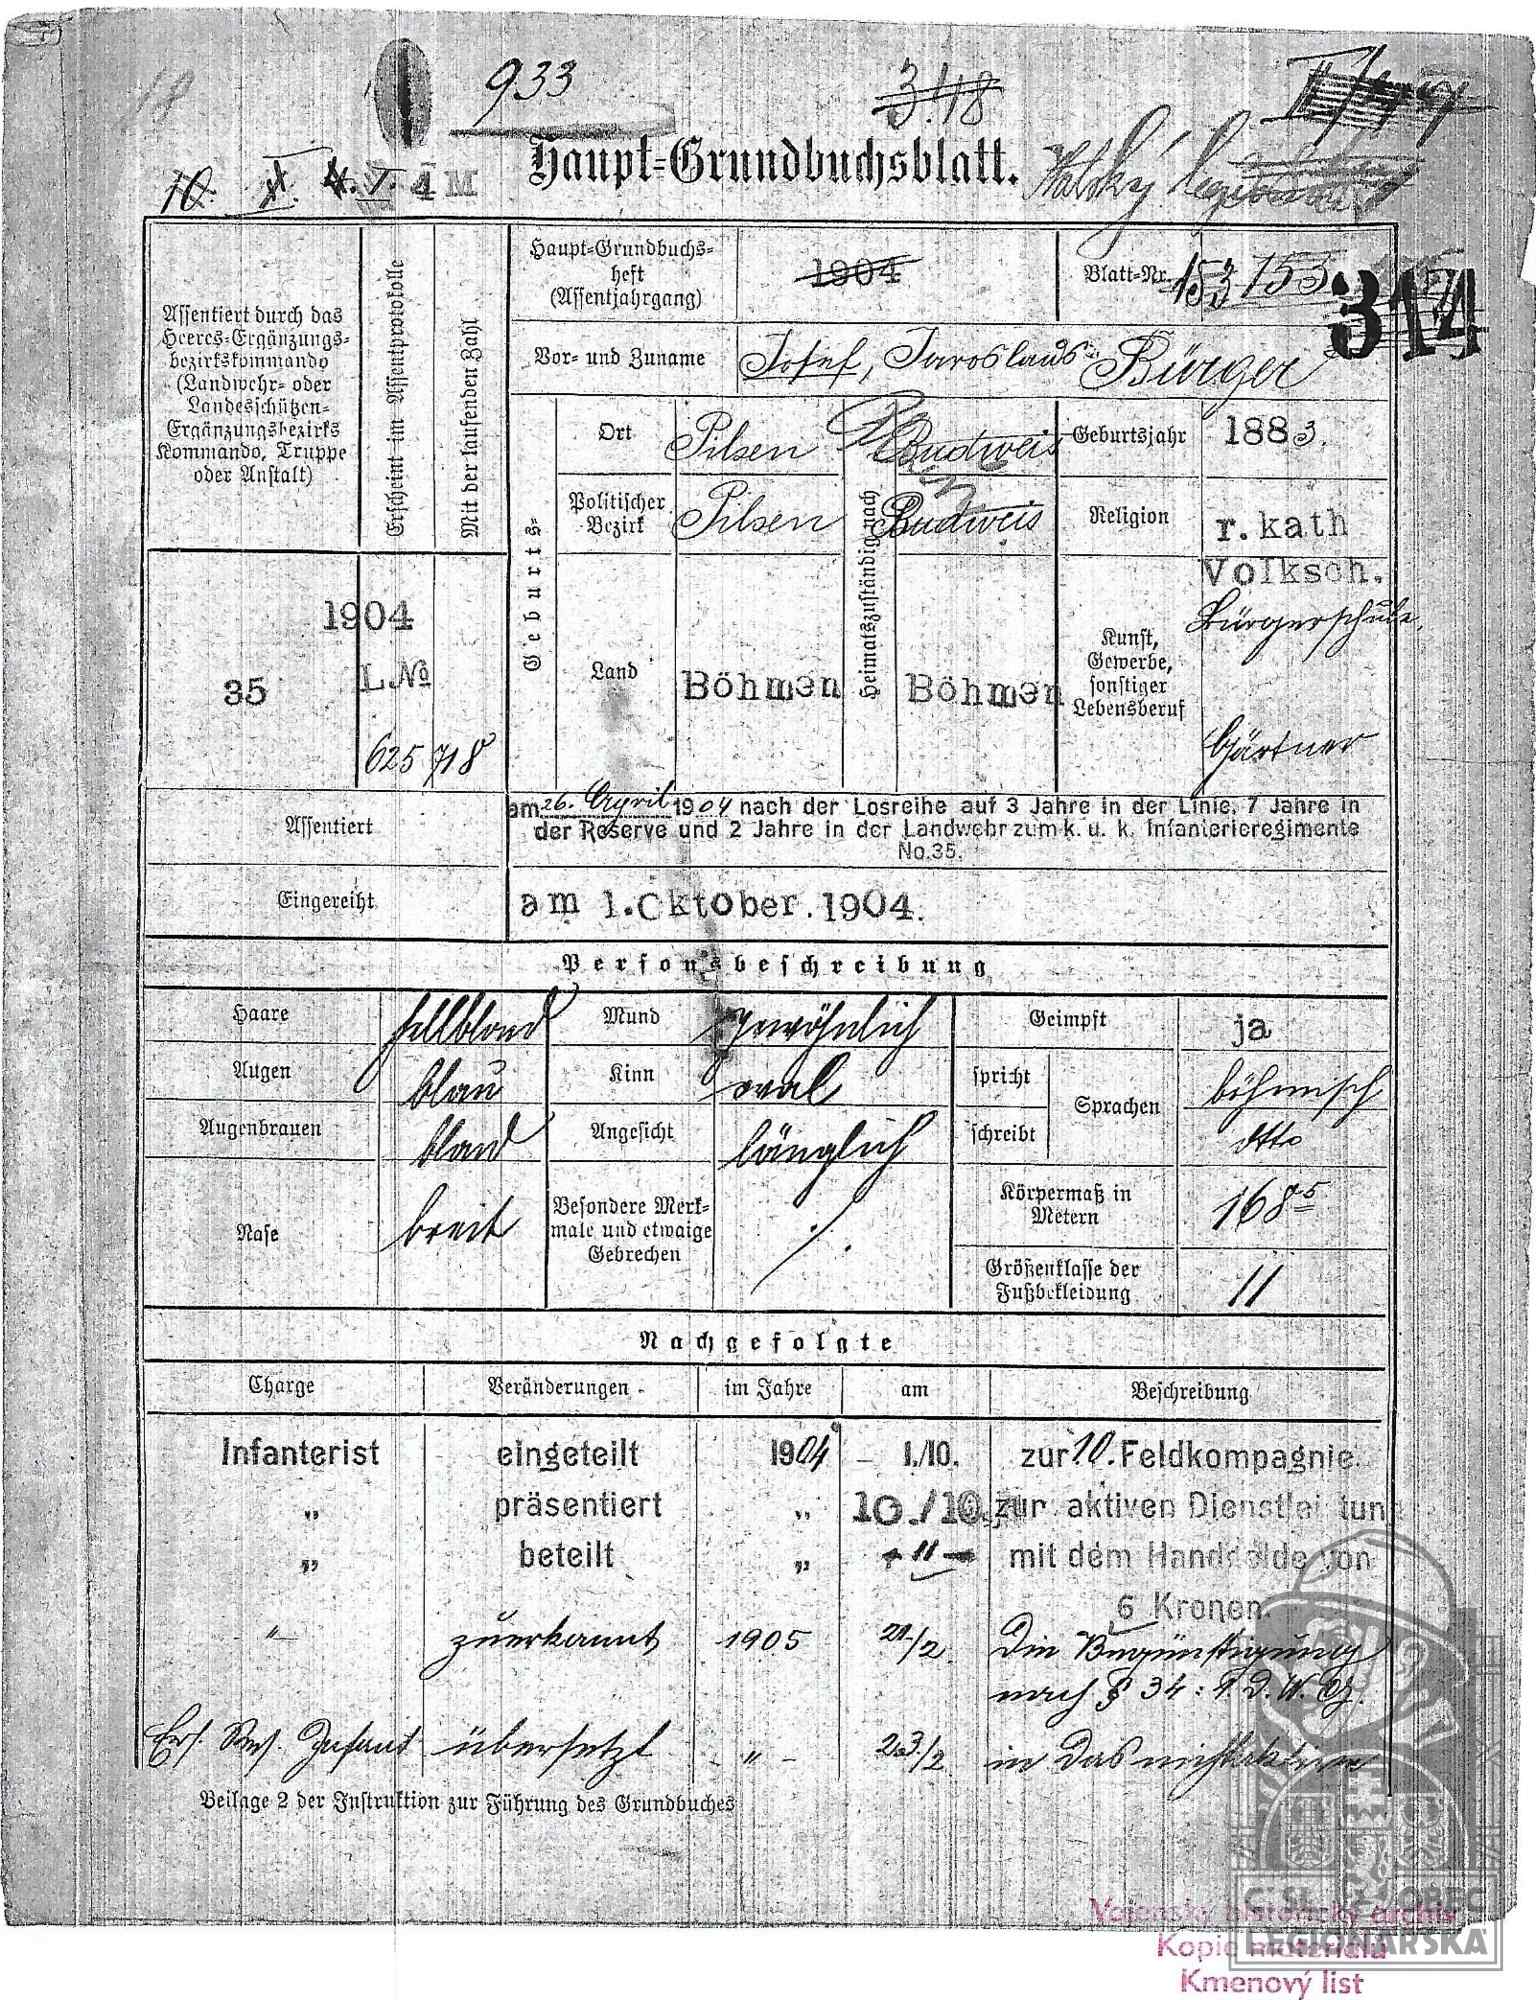 18
933
3.18
Haupt-Grundbuchsblatt.
Italský
10. X. 4. M
Assentiert durch das
Heeres-Ergänzungs-
bezirkskommando
(Landwehr- oder
Landesschützen-
Ergänzungsbezirks
Kommando, Truppe
oder Anstalt)
Erscheint im Assentprotokolle
Mit der laufenden Zahl
Haupt-Grundbuchs-
heft
(Assentjahrgang)
1904
Blatt-Nr.
153 153
314
Vor- und Zuname
Josef, Jaroslaus Bürger
Geburts-
Ort
Pilsen
Heimatszuständig nach
Budweis
Geburtsjahr
1883.
Politischer
Bezirk
Pilsen
Budweis
Religion
r. kath
Land
Böhmen
Böhmen
Kunst,
Gewerbe,
sonstiger
Lebensberuf
Volksch.
Bürgerschule,
Gärtner
35
1904
L.No
625 718
Assentiert
am 26. April 1904 nach der Losreihe auf 3 Jahre in der Linie, 7 Jahre in
der Reserve und 2 Jahre in der Landwehr zum k. u. k. Infanterieregimente
No.35.
Eingereiht
am 1. Oktober. 1904.
Personsbeschreibung
Haare
hellblond
Mund
gewöhnlich
Geimpft
ja
Augen
blau
Kinn
oval
spricht
Sprachen
böhmisch
Augenbrauen
blond
Angesicht
länglich
schreibt
dtto
Nase
breit
Besondere Merk-
male und etwaige
Gebrechen
Körpermaß in
Metern
168⁵
Größenklasse der
Fußbekleidung
11
Nachgefolgte
Charge Veränderungen im Jahre am Beschreibung
Infanterist eingeteilt 1904 1./10. zur 10. Feldkompagnie.
„ präsentiert „ 10./10. zur aktiven Dienstleistung
„ beteilt „ 11 mit dem Handgelde von
6 Kronen.
„ zuerkannt 1905 21/2 die Begünstigung
nach § 34: d. W. G.
Ers. Res. Infant übersetzt „ 23./2 in das nichtaktive
Beilage 2 der Instruktion zur Führung des Grundbuches
ČSL. OBEC
LEGIONÁŘSKÁ
Vojenský historický archiv
Kopie materiálu
Kmenový list